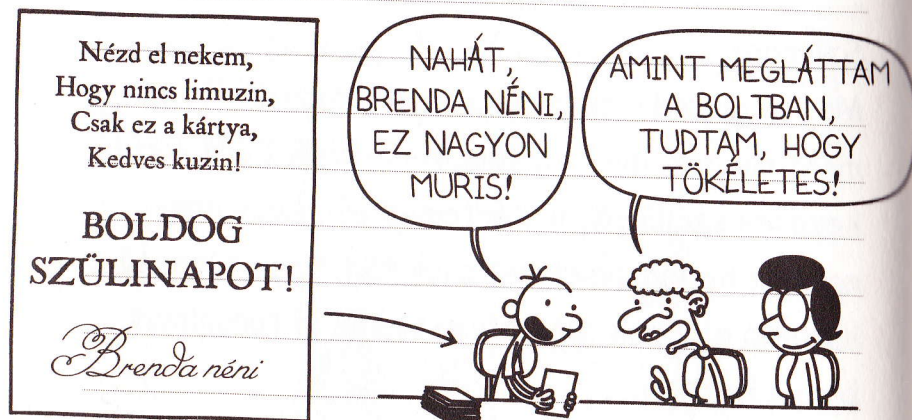 Nézd el nekem,
Hogy nincs limuzin,
Csak ez a kártya,
Kedves kuzin!
BOLDOG
SZÜLINAPOT!
Brenda néni
NAHÁT,
BRENDA NÉNI,
EZ NAGYON
MURIS!
AMINT MEGLÁTTAM
A BOLTBAN,
TUDTAM, HOGY
TÖKÉLETES!